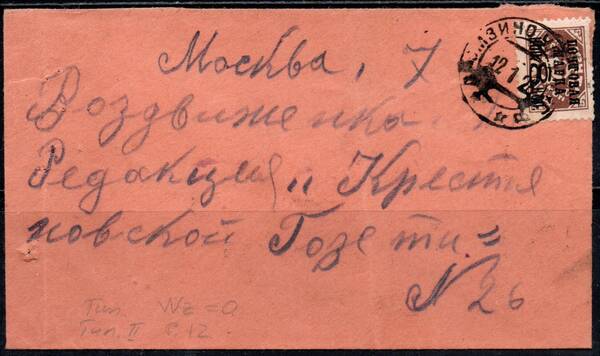 Москва, 7
Воздвиженка
Редакция „Крестя
новской Газеты=
N 26
Тип. Wz=0
Тип. II
12 1